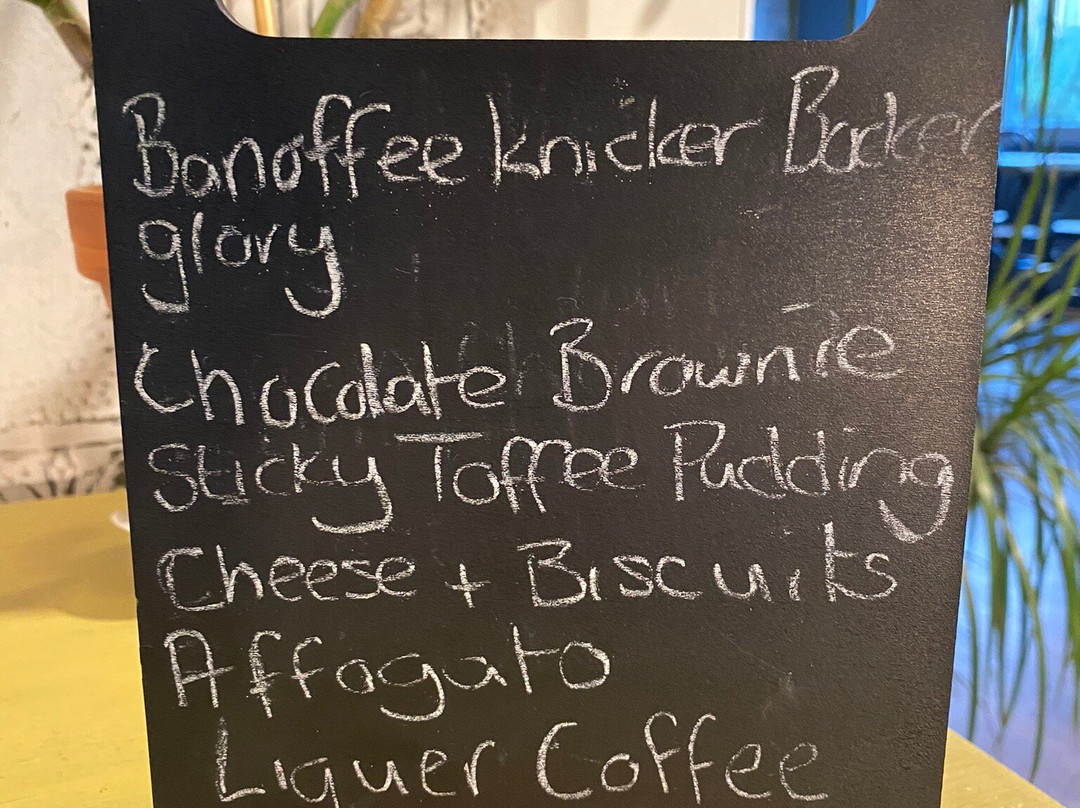 Banoffee knicker Backer
glory
Chocolate Brownie
Sticky Toffee Pudding
Cheese + Biscuits
Affogato
Liquer Coffee